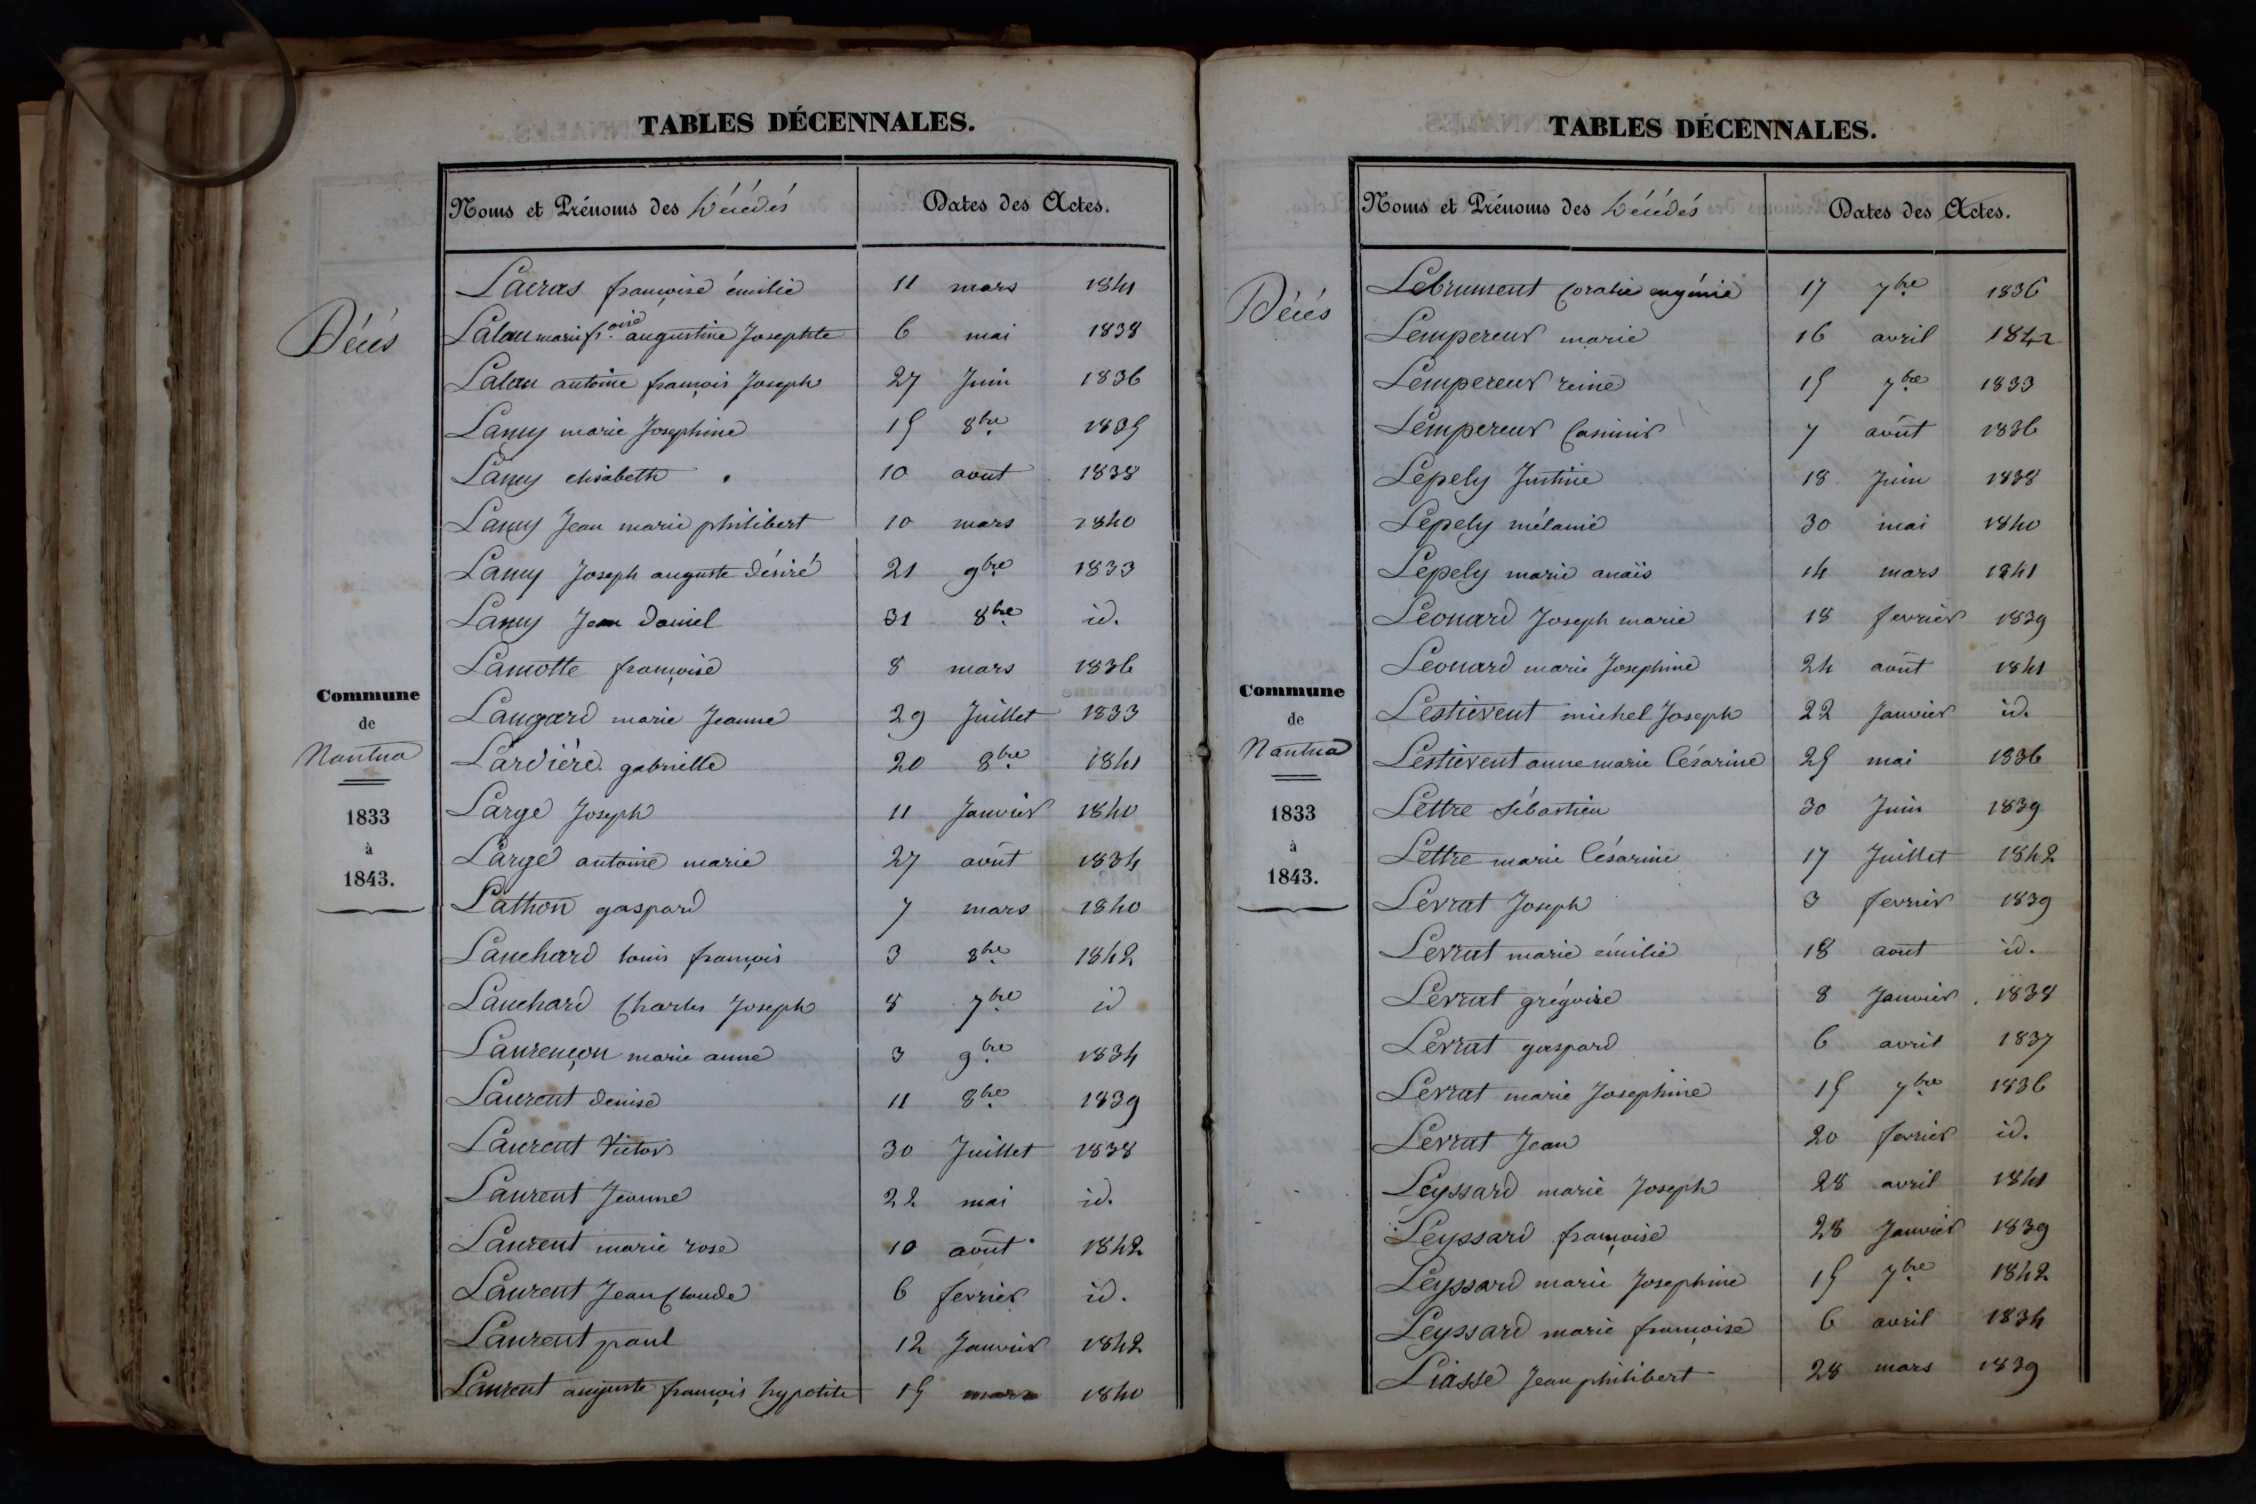 TABLES DÉCENNALES.
Noms et Prénoms des Décédés Dates des Actes.
Décés
Commune
de
Nantua
1833
à
1843.
Lacras françoise émilie 11 mars 1841
Lalau marie f.oise augustine Josephte 6 mai 1838
Lalau antoine françois Joseph 27 Juin 1836
Lamy marie Josephine 15 8bre 1835
Lamy elisabeth 10 aout 1838
Lamy Jean marie philibert 10 mars 1840
Lamy Joseph auguste désiré 21 9bre 1833
Lamy Jean Daniel 31 8bre id.
Lamotte françoise 8 mars 1836
Langard marie Jeanne 29 Juillet 1833
Lardière gabrielle 20 8bre 1841
Large Joseph 11 Janvier 1840
Large antoine marie 27 août 1834
Lathon gaspard 7 mars 1840
Lauchard louis françois 3 8bre 1842
Lauchard Charles Joseph 8 7bre id
Laurençon marie anne 3 9bre 1834
Laurent denise 11 8bre 1839
Laurent Victor 30 Juillet 1838
Laurent Jeanne 22 mai id.
Laurent marie rose 10 août 1842
Laurent Jean Claude 6 fevrier id.
Laurent paul 12 Janvier 1842
Laurent auguste françois hypolite 15 mars 1840
TABLES DÉCENNALES.
Noms et Prénoms des Décédés Dates des Actes.
Décés
Commune
de
Nantua
1833
à
1843.
Lebrument Coralie eugénie 17 7bre 1836
Lempereur marie 16 avril 1842
Lempereur reine 15 7bre 1833
Lempereur Casimir 7 août 1836
Lepely Justine 18 Juin 1838
Lepely mélanie 30 mai 1840
Lepely marie anaïs 14 mars 1841
Leonard Joseph marie 18 fevrier 1839
Leonard marie Josephine 24 août 1841
Lestievent michel Joseph 22 Janvier id.
Lestievent anne marie Césarine 25 mai 1836
Lettre Sébastien 30 Juin 1839
Lettre marie Césarine 17 Juillet 1842
Levrat Joseph 3 fevrier 1839
Levrat marie émilie 18 aout id.
Levrat grégoire 8 Janvier 1838
Levrat gaspard 6 avril 1837
Levrat marie Josephine 15 7bre 1836
Levrat Jean 20 fevrier id.
Leyssard marie Joseph 28 avril 1841
Leyssard françoise 28 Janvier 1839
Leyssard marie Josephine 15 7bre 1842
Leyssard marie françoise 6 avril 1834
Liasse Jean philibert 28 mars 1839